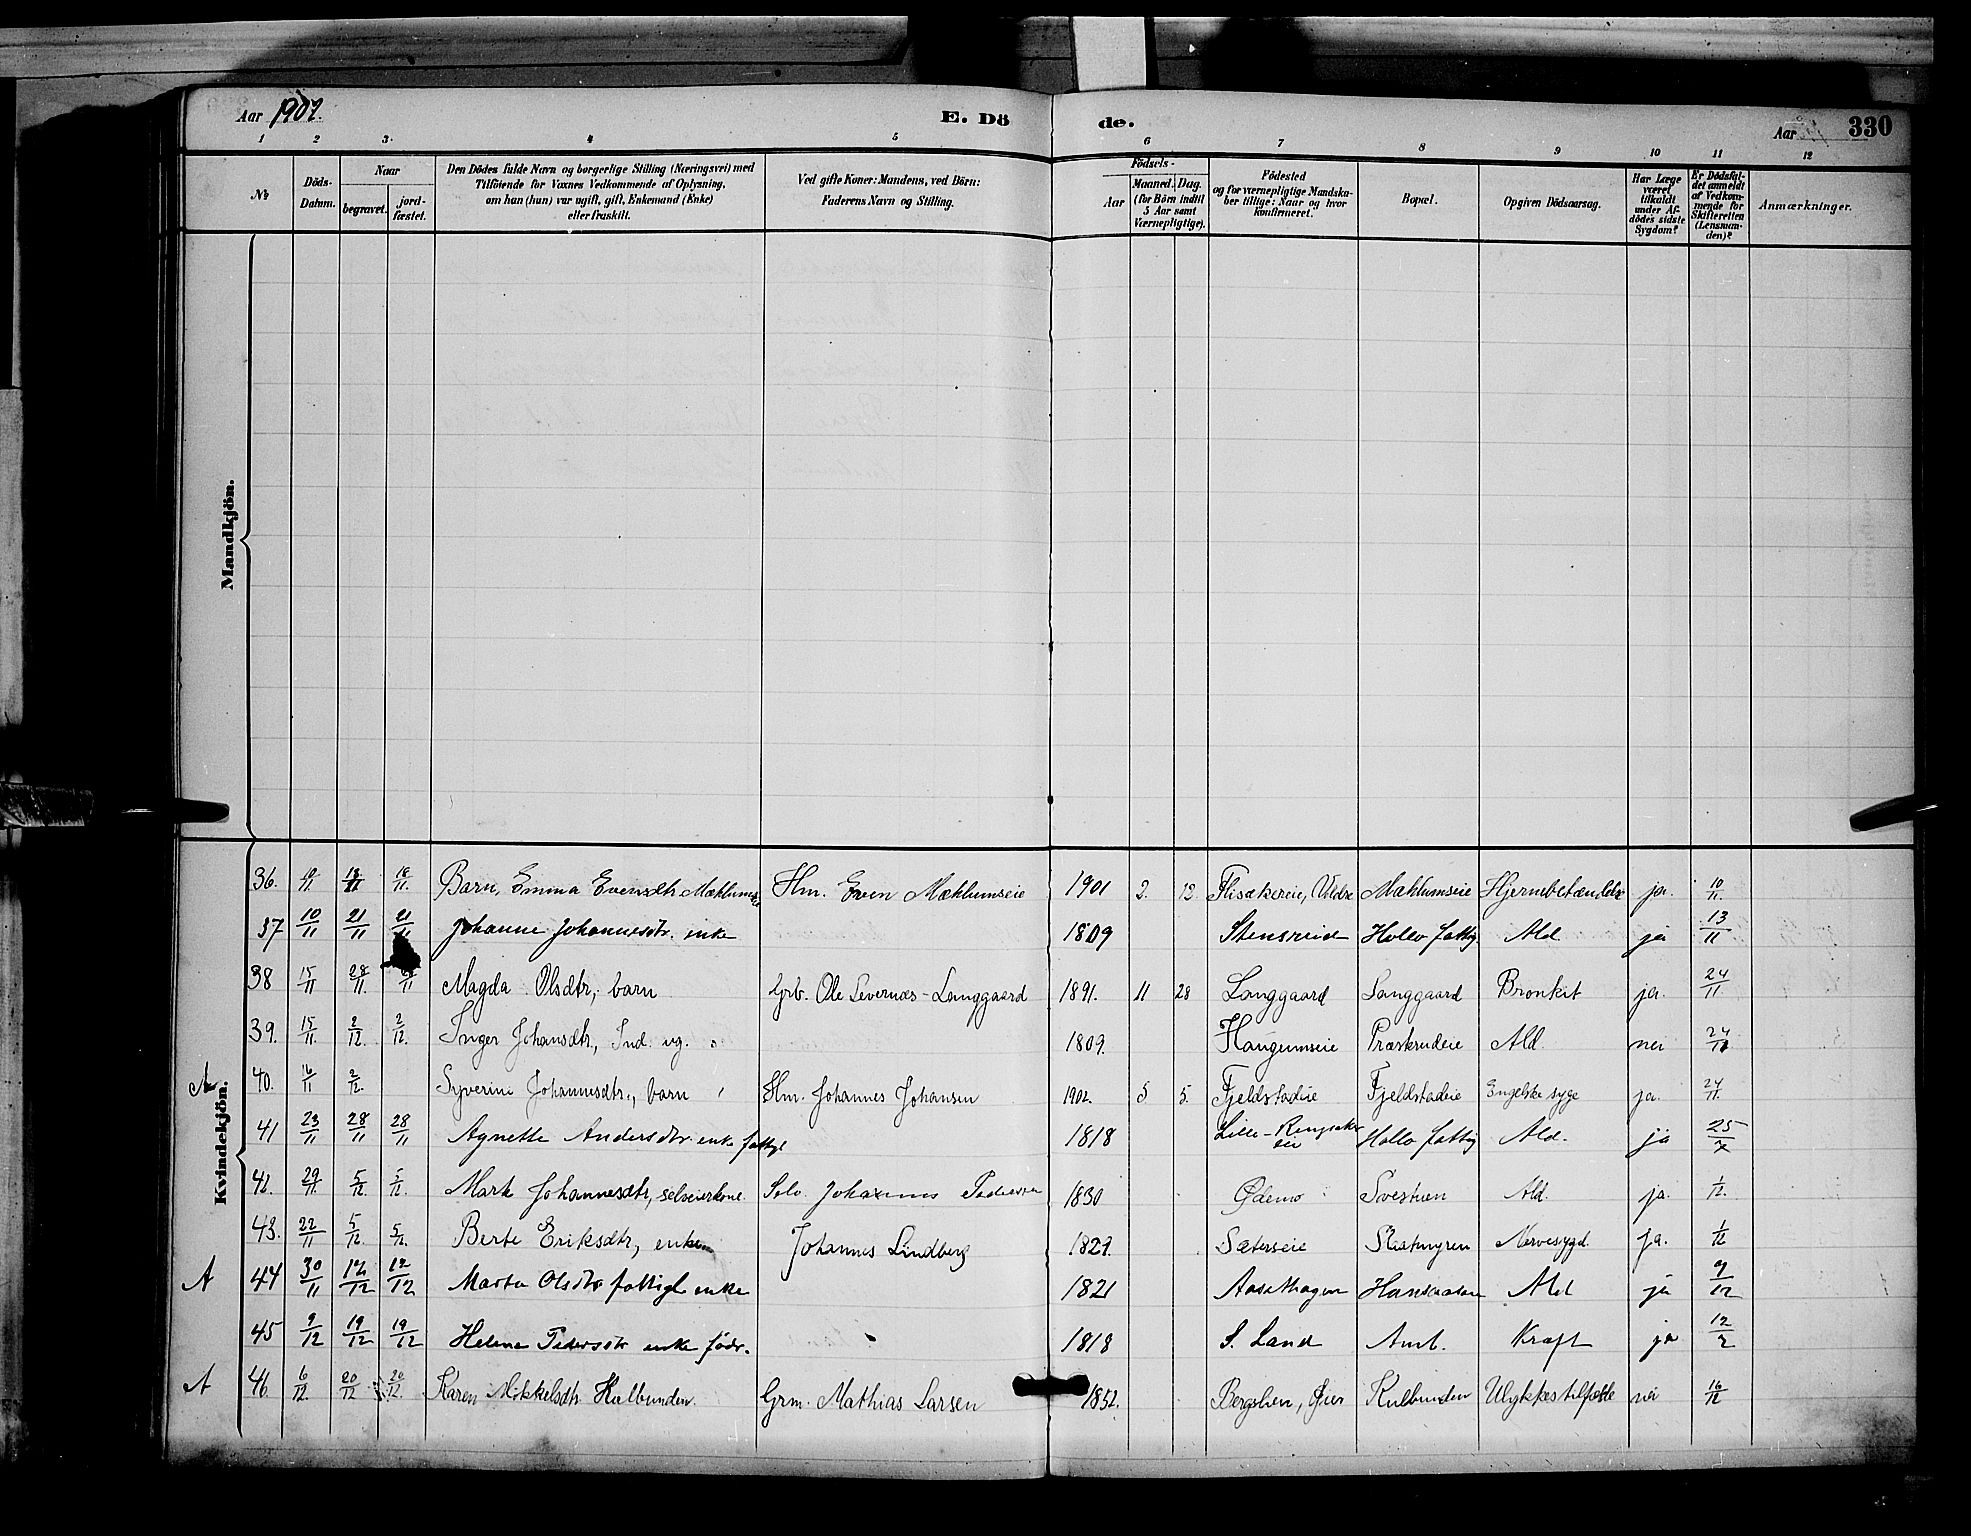 Aar 1902. E. Dö de. Aar 330
1 2 3. 4 5 6 7 8 9 10 11 12
№ Döds-Datum. Naar begravet. jordfæstet. Den Dödes fulde Navn og borgerlige Stilling (Næringsvei) med Tilföiende for Voxnes Vedkommende af Oplysning, om han (hun) var ugift, gift, Enkemand (Enke) eller fraskilt. Ved gifte Koner: Mandens, ved Börn: Faderens Navn og Stilling. Födsels- Aar Maaned. Dag. (for Börn indtil 5 Aar samt Værnepligtige). Födested og for værnepligtige Mandskaber tillige: Naar og hvor konfirmeret. Bopæl. Opgiven Dödsaarsag. Har Læge været tilkaldt under Afdödes sidste Sygdom? Er Dödsfaldet anmeldt af Vedkommende for Skifteretten (Lensmanden)? Anmærkninger.
Mandkjön.
Kvindekjön.
36. 18/11 18/11. Barn, Emma Evensdtr Mæhlumseie Hm. Even Mæhlumseie 1901 2. 12. Flisakereie, Mæhlumseie Hjernebetændelse ja. 10/11.
37 10/11 21/11 21/11 Johanne Johannesdtr. enke 1809 Stensveid Hollo fattig Ald ja 13/11
38 15/11 28/11. Magda Olsdtr, barn Grb. Ole Severnæs-Langgaard 1891. 11 28 Langgaard Langgaard Bronkit ja. 24/11
39. 15/11. 2/12. 2/12. Inger Johansdtr, Ind. ug. 1809. Haugumseie Præstrudeie Ald. nei 24/11
A 40. 16/11 2/12. Syverine Johannesdtr., barn Hm. Johannes Johansen 1902. 5 5. Fjeldstadeie Fjeldstadeie Engelske syge ja. 24/11.
41 23/11 28/11 28/11 Agnette Andersdtr. enke fattigl 1818 Lille-Ringsaker eie Hollo fattig Ald. ja 25/
42. 29/11. 5/12. 5/12. Marte Johannesdtr, selveierkone Selv. Johannes Pedersen 1830 Ødemo Svestuen Ald. ja. 1/12.
43. 22/11 5/12. 5/12. Berte Eriksdtr, enke Johannes Lindberg 1827. Sæterseie Skatmyren Nervesygd. ja. 1/12
A 44 30/11 12/12 12/12 Marta Olsdtr fattigl. enke 1821 Aasekhagen Ald ja 9/12
45 9/12 19/12 19/12 Helene Pedersdtr enke födr. 1818 S. Land Amb. Kræft ja 12/
A 46. 6/12. 20/12 20/12. Karen Mikkelsdtr. Hulbunden. Grm. Mathias Larsen 1852. Bergslien, Øier Kulbunden Ulykkestilfælde nei 16/12